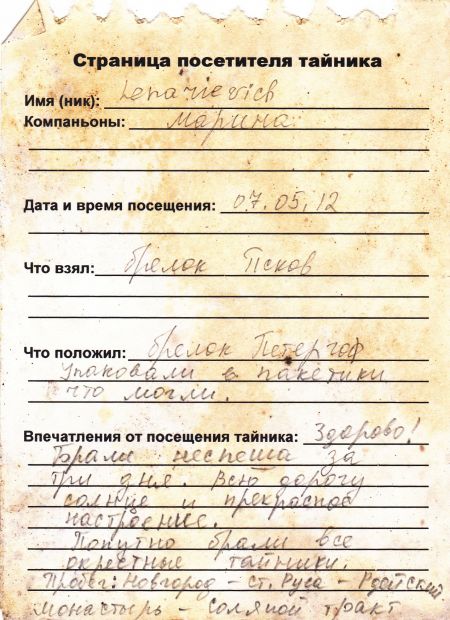 Страница посетителя тайника
Имя (ник):
Компаньоны: Марина
Дата и время посещения: 07.05.12
Что взял: брелок Псков
Что положил: брелок Петергоф
упаковали в пакетики
что могли.
Впечатления от посещения тайника: Здорово!
Брали неспеша за
три дня. Всю дорогу
солнце и прекрасное
настроение.
Попутно брали все
окрестные тайники.
Пробег: Новгород - Ст. Русса - Рдейский
монастырь - Соляной тракт